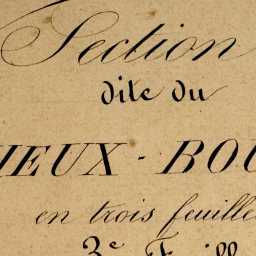 Section
dite du
IEUX-BOU
en trois feuille
3e Feuill